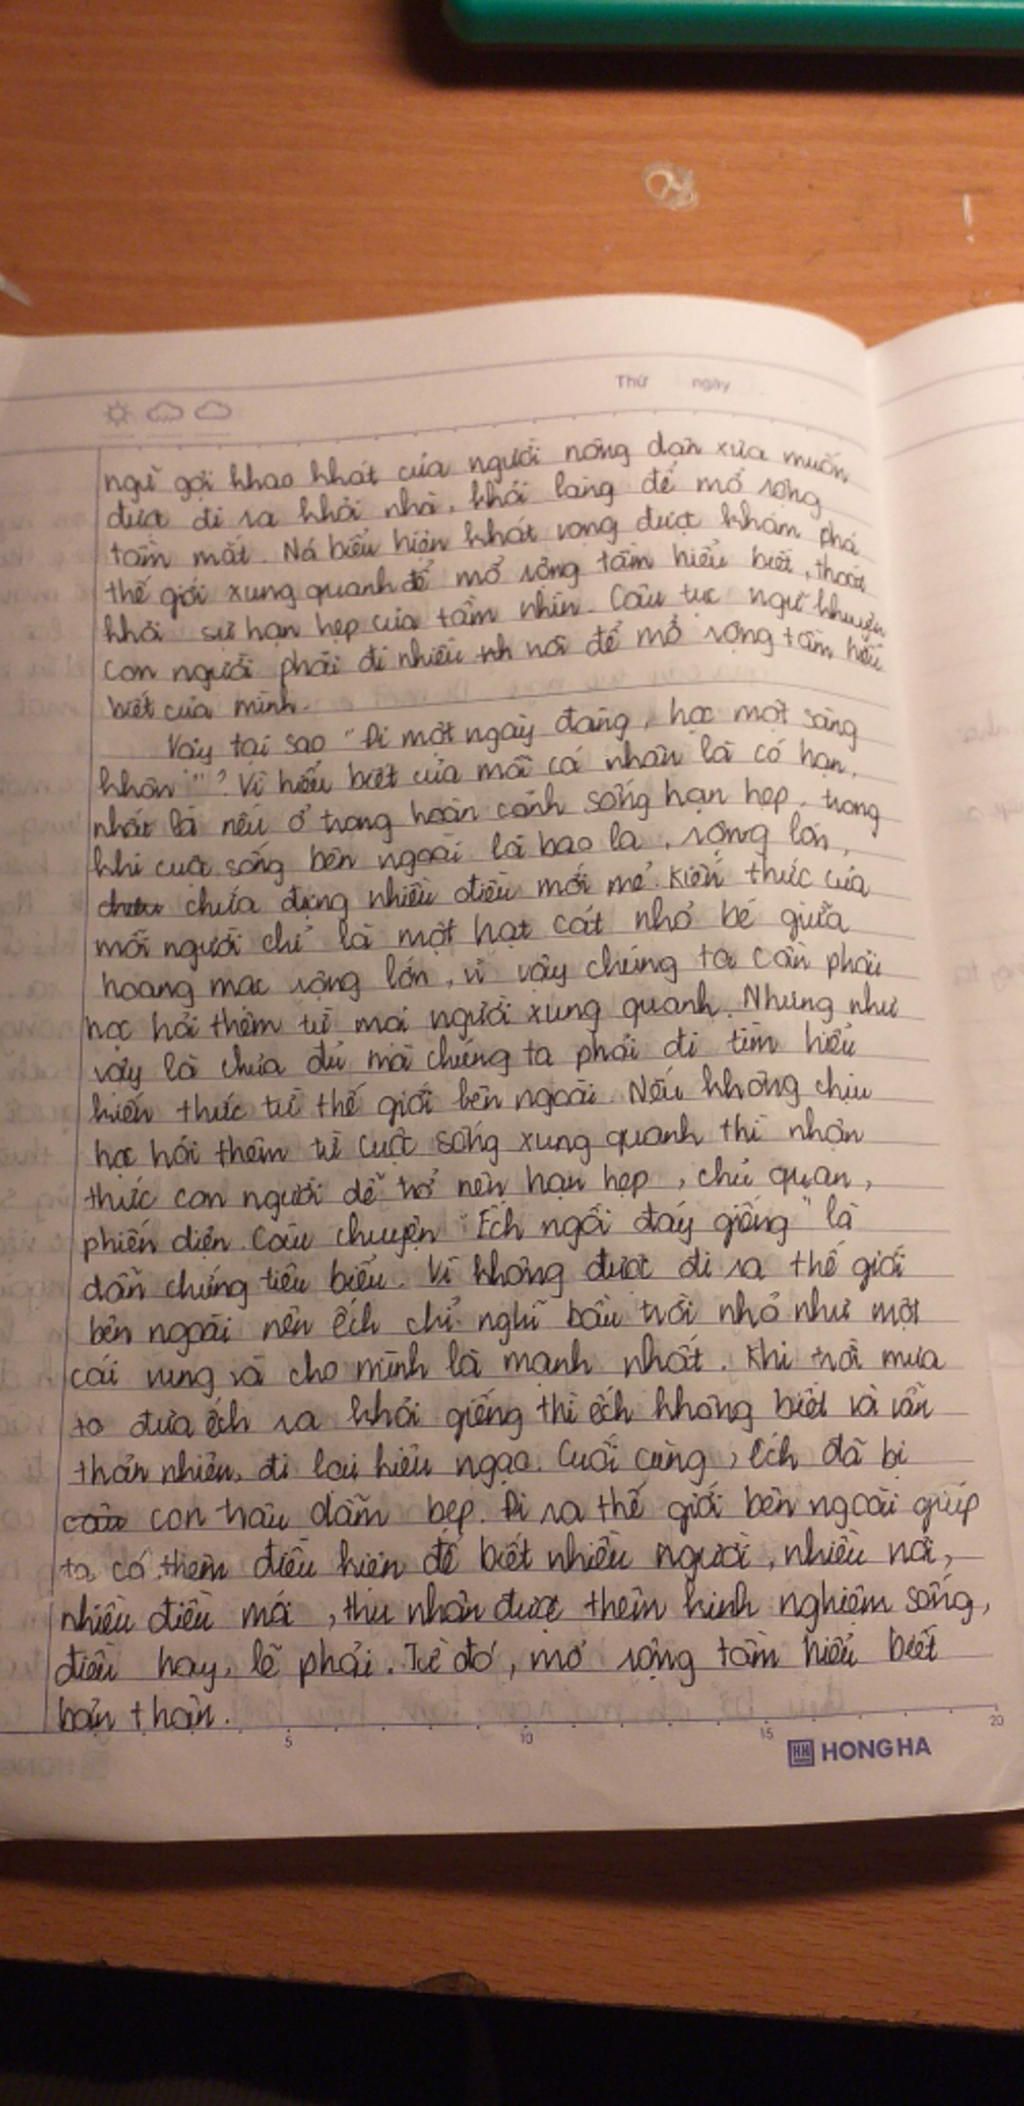 Thứ ngày
ngữ gợi khao khát của người nông dân xưa muốn
được đi ra khỏi nhà, khỏi làng để mở rộng
tầm mắt. Nó biểu hiện khát vọng được khám phá
thế giới xung quanh để mở rộng tầm hiểu biết, thoát
khỏi sự hạn hẹp của tầm nhìn. Câu tục ngữ khuyên
con người phải đi nhiều nơi để mở rộng tầm hiểu
biết của mình.
Vậy tại sao "Đi một ngày đàng, học một sàng
khôn"? Vì hiểu biết của mỗi cá nhân là có hạn,
nhất là nếu ở trong hoàn cảnh sống hạn hẹp, trong
khi cuộc sống bên ngoài là bao la, rộng lớn,
chứa đựng nhiều điều mới mẻ. Kiến thức của
mỗi người chỉ là một hạt cát nhỏ bé giữa
hoang mạc rộng lớn, vì vậy chúng ta cần phải
học hỏi thêm từ mọi người xung quanh. Nhưng như
vậy là chưa đủ mà chúng ta phải đi tìm hiểu
kiến thức từ thế giới bên ngoài. Nếu không chịu
học hỏi thêm từ cuộc sống xung quanh thì nhận
thức con người dễ trở nên hạn hẹp, chủ quan,
phiến diện. Câu chuyện "Ếch ngồi đáy giếng" là
dẫn chứng tiêu biểu. Vì không được đi ra thế giới
bên ngoài nên ếch chỉ nghĩ bầu trời nhỏ như một
cái vung và cho mình là mạnh nhất. Khi trời mưa
to đưa ếch ra khỏi giếng thì ếch không biết và vẫn
thản nhiên, đi lại kiêu ngạo. Cuối cùng, ếch đã bị
con trâu dẫm bẹp. Đi ra thế giới bên ngoài giúp
ta có thêm điều kiện để biết nhiều người, nhiều nơi,
nhiều điều mới, thu nhận được thêm kinh nghiệm sống,
điều hay, lẽ phải. Từ đó, mở rộng tầm hiểu biết
bản thân.
5 10 15 20
HH HONG HA